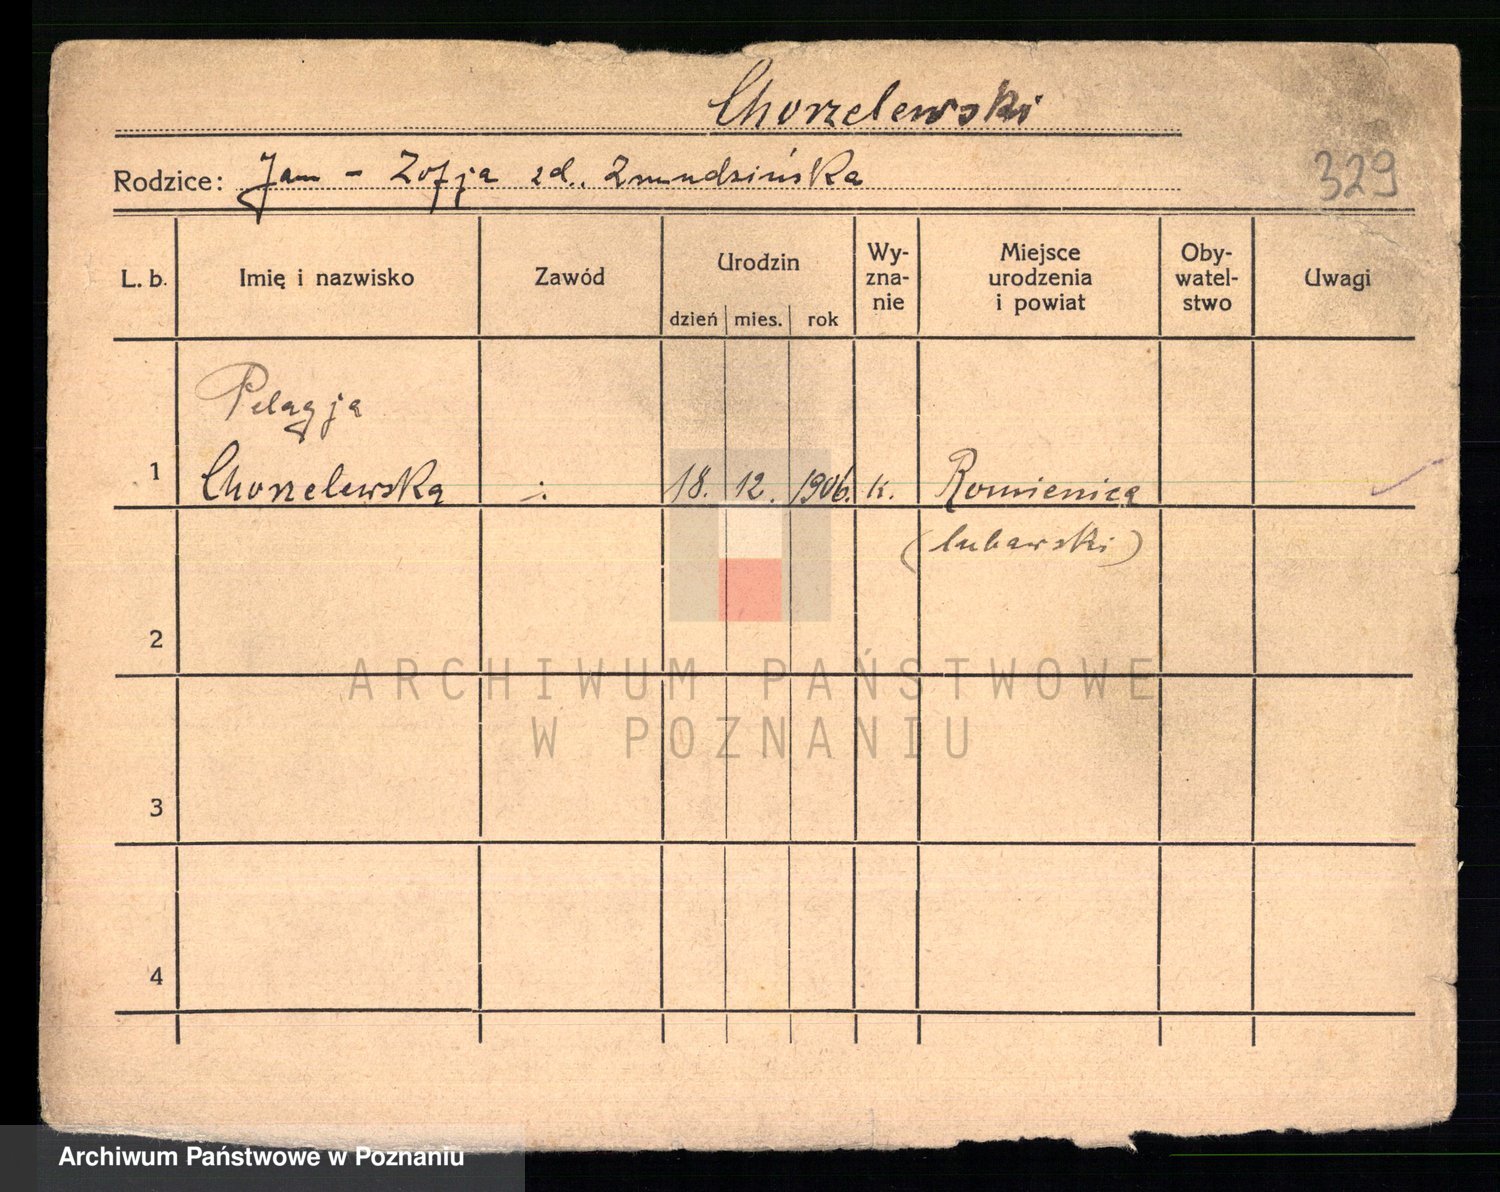 Chorzelewski
Rodzice: Jan - Zofja zd. Zmudzińska
329
L. b. Imię i nazwisko Zawód Urodzin Wy- zna- nie Miejsce urodzenia i powiat Oby- watel- stwo Uwagi
dzień mies. rok
Pelagja
1 Chorzelewska 18. 12. 1906. k. Romienica
(lubawski)
2
3
4
ARCHIWUM PAŃSTWOWE
W POZNANIU
Archiwum Państwowe w Poznaniu